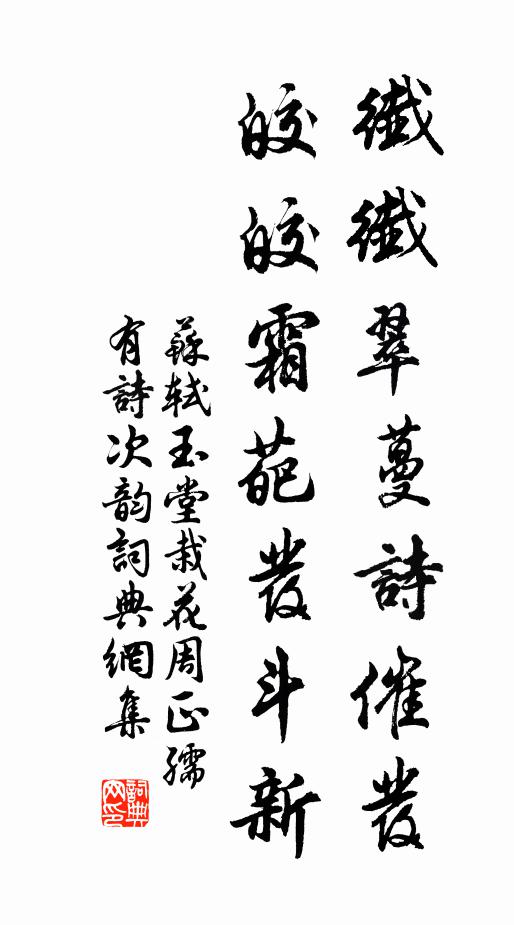 纖纖翠蔓詩催發
皎皎霜葩發斗新
蘇軾玉堂栽花周正孺
有詩次韵詞典網集
詞典网印